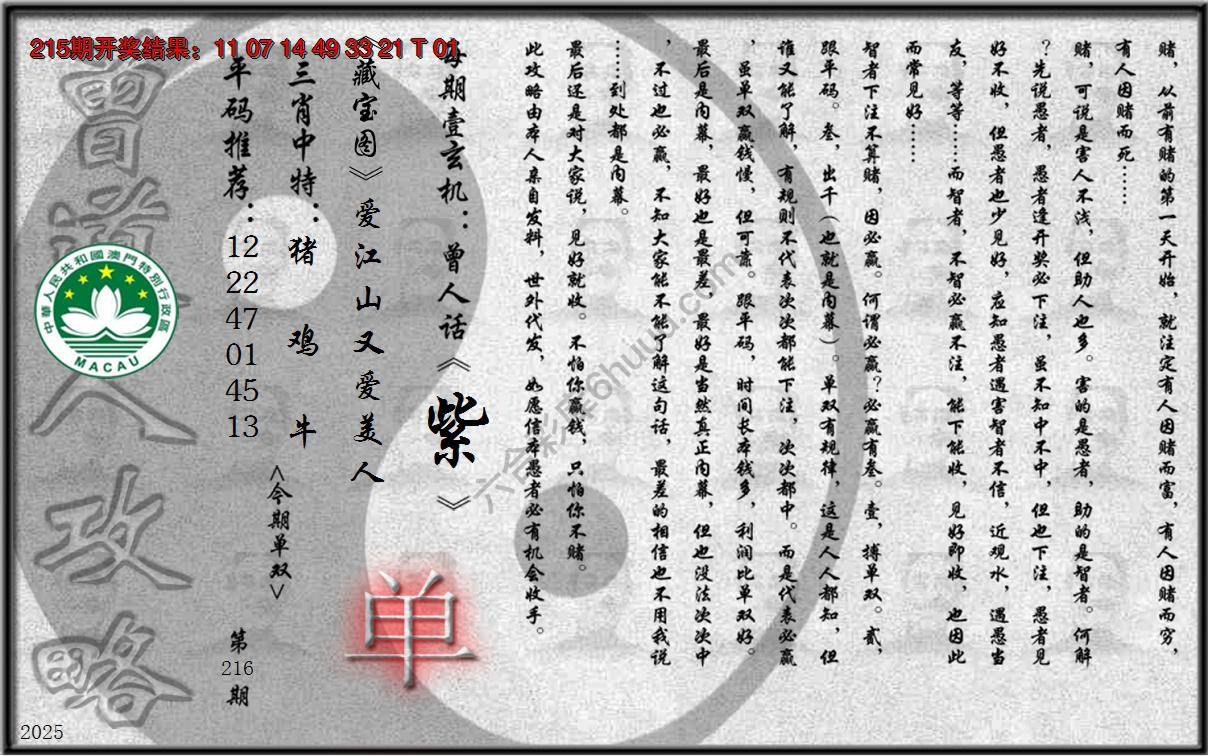 215期开奖结果：11 07 14 49 33 21 T 01
赌，从前有赌的第一天开始，就注定有人因赌而富，有人因赌而穷，
有人因赌而死……
赌，可说是害人不浅，但助人也多。害的是愚者，助的是智者。何解
？先说愚者，愚者逢开奖必下注，虽不知中不中，但也下注，愚者见
好不收，但愚者也少见好，应知愚者遇害智者不信，近观水，遇愚当
友，等等……而智者，不智必赢不注，能下能收，见好即收，也因此
而常见好……
智者下注不算赌，因必赢。何谓必赢？必赢有叁。壹，搏单双。贰，
跟平码。叁，出千（也就是内幕）。单双有规律，这是人人都知，但
谁又能了解，有规则不代表次次都能下注，次次都中。而是代表必赢
，虽单双赢钱慢，但可靠。跟平码，时间长本钱多，利润比单双好。
最后是内幕，最好也是最差，最好是当然真正内幕，但也没法次次中
，不过也必赢，不知大家能不能了解这句话，最差的相信也不用我说
……到处都是内幕。
最后还是对大家说，见好就收。不怕你赢钱，只怕你不赌。
此攻略由本人亲自发料，世外代发，如愿信本愚者必有机会收手。
每期壹玄机：曾人话《紫》
《藏宝图》爱江山又爱美人
三肖中特：猪 鸡 牛
平码推荐：12 22 47 01 45 13
<今期单双>
单
第216期
曾道人攻略
中華人民共和國澳門特別行政區
MACAU
六合彩库6huuu.com
2025